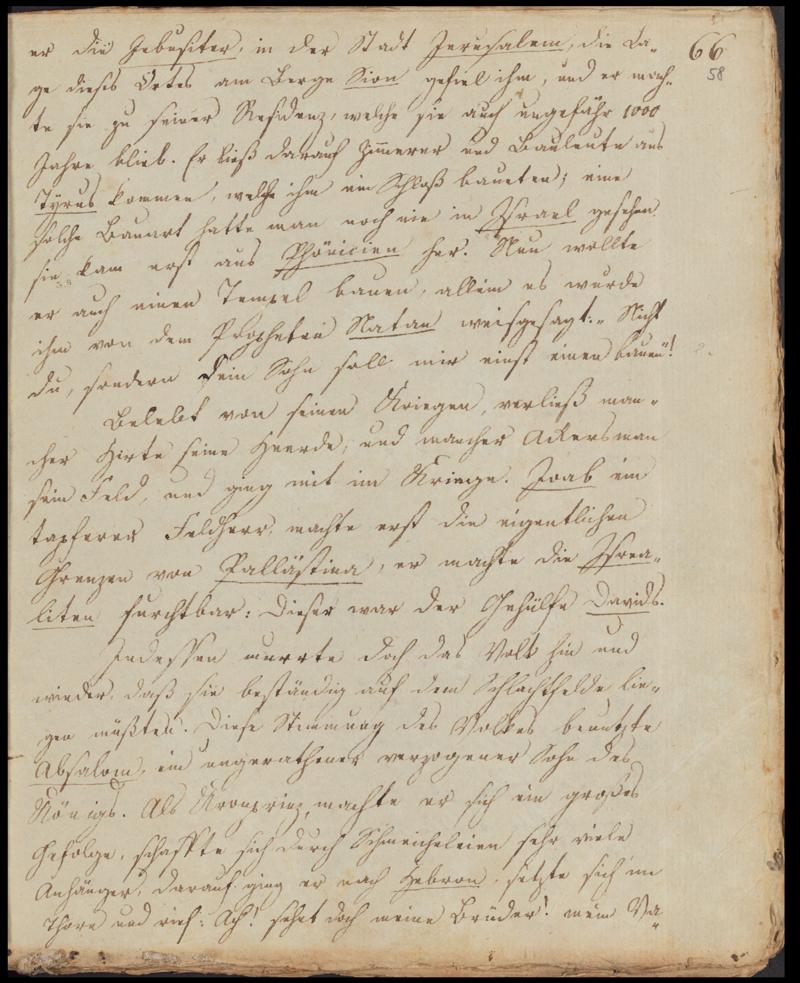 66
58
er die Jebusiter, in der Stadt Jerusalem, die La-
ge dieses Ortes am Berge Sion gefiel ihm, und er mach-
te sie zu seiner Residenz, welche sie auch ungefähr 1000
Jahre blieb. Er ließ darauf Zimmerer und Bauleute aus
Tyrus kommen, welche ihm ein Schloß baueten; eine
solche Bauart hatte man noch nie in Israel gesehen
sie kam erst aus Phönicien her. Nun wollte
er auch einen Tempel bauen, allein es wurde
ihm von dem Propheten Natan weisgesagt: „Nicht
du, sondern dein Sohn soll mir einst einen bauen"!
Belebt von seinen Kriegen, verließ man-
cher Hirte seine Heerde, und mancher Ackersman
sein Feld, und ging mit im Kriege. Joab ein
tapferer Feldherr, machte erst die eigentlichen
Grenzen von Pallästina, er machte die Israe-
liten furchtbar: dieser war der Gehülfe Davids.
Indessen murrte doch das Volk hin und
wieder, daß sie beständig auf dem Schlachtfelde lie-
gen müßten. Diese Stimmung des Volkes benutzte
Absalom, ein ungerathener verzogener Sohn des
Königs. Als Kronprinz machte er sich ein großes
Gefolge, schaffte sich durch Schmeicheleien sehr viele
Anhänger, darauf ging er nach Hebron, setzte sich im
Thore und rief: Ach! sehet doch meine Brüder! mein Va-